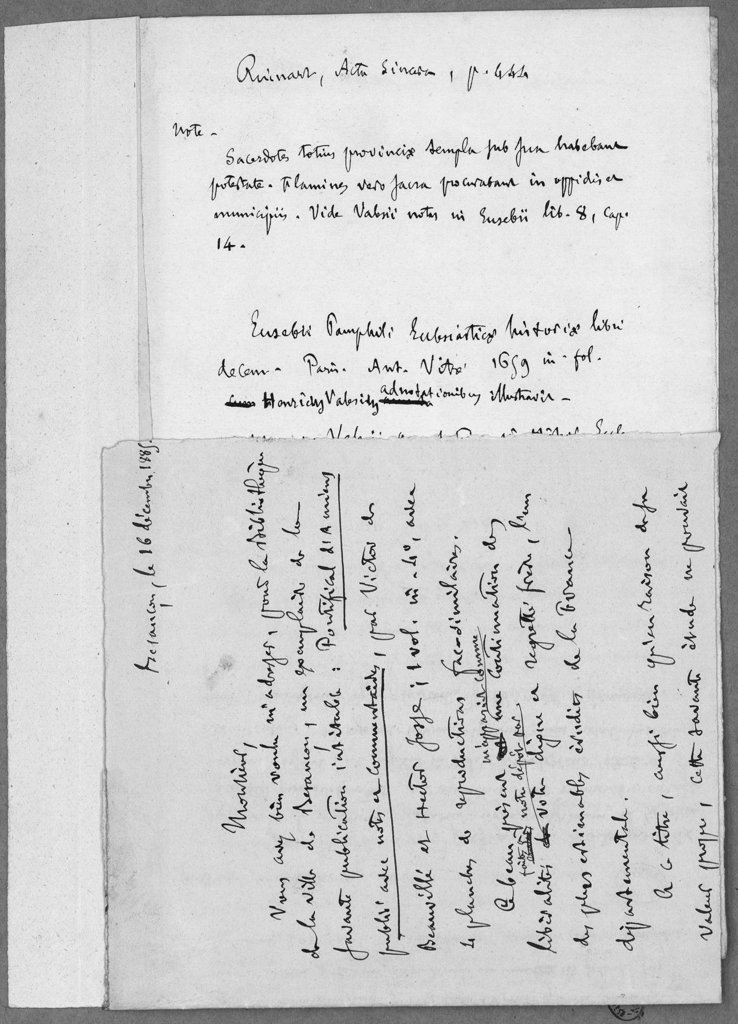 Ruinart, Acta Sincera, p. 444
Note -
Sacerdotes totius provinciæ templa sub sua habebant
potestate. Flamines vero sacra procurabant in oppidis et
municipiis. Vide Valesii notes in Eusebii lib. 8, cap.
14.
Eusebii Pamphili Ecclesiasticæ historiæ libri
decem - Paris. Ant. Vitré 1659 in-fol.
Henricus Valesius adnotationibus illustravit -
Besançon, le 16 décembre 1885.
Monsieur,
Vous avez bien voulu m'adresser, pour la Bibliothèque
de la ville de Besançon, un exemplaire de la
savante publication intitulée : Pontifical d'Amiens
publié avec notes et commentaires, par Victor de
Beauvillé et Hector Josse ; 1 vol. in-4°, avec
4 planches de reproductions fac-similaires.
Ce beau présent m'apparait comme une continuation des
libéralités faites à notre dépôt par votre digne et regretté frère, l'un
des plus estimables érudits de la France
départementale.
A ce titre, aussi bien qu'en raison de sa
valeur propre, cette savante étude ne pouvait